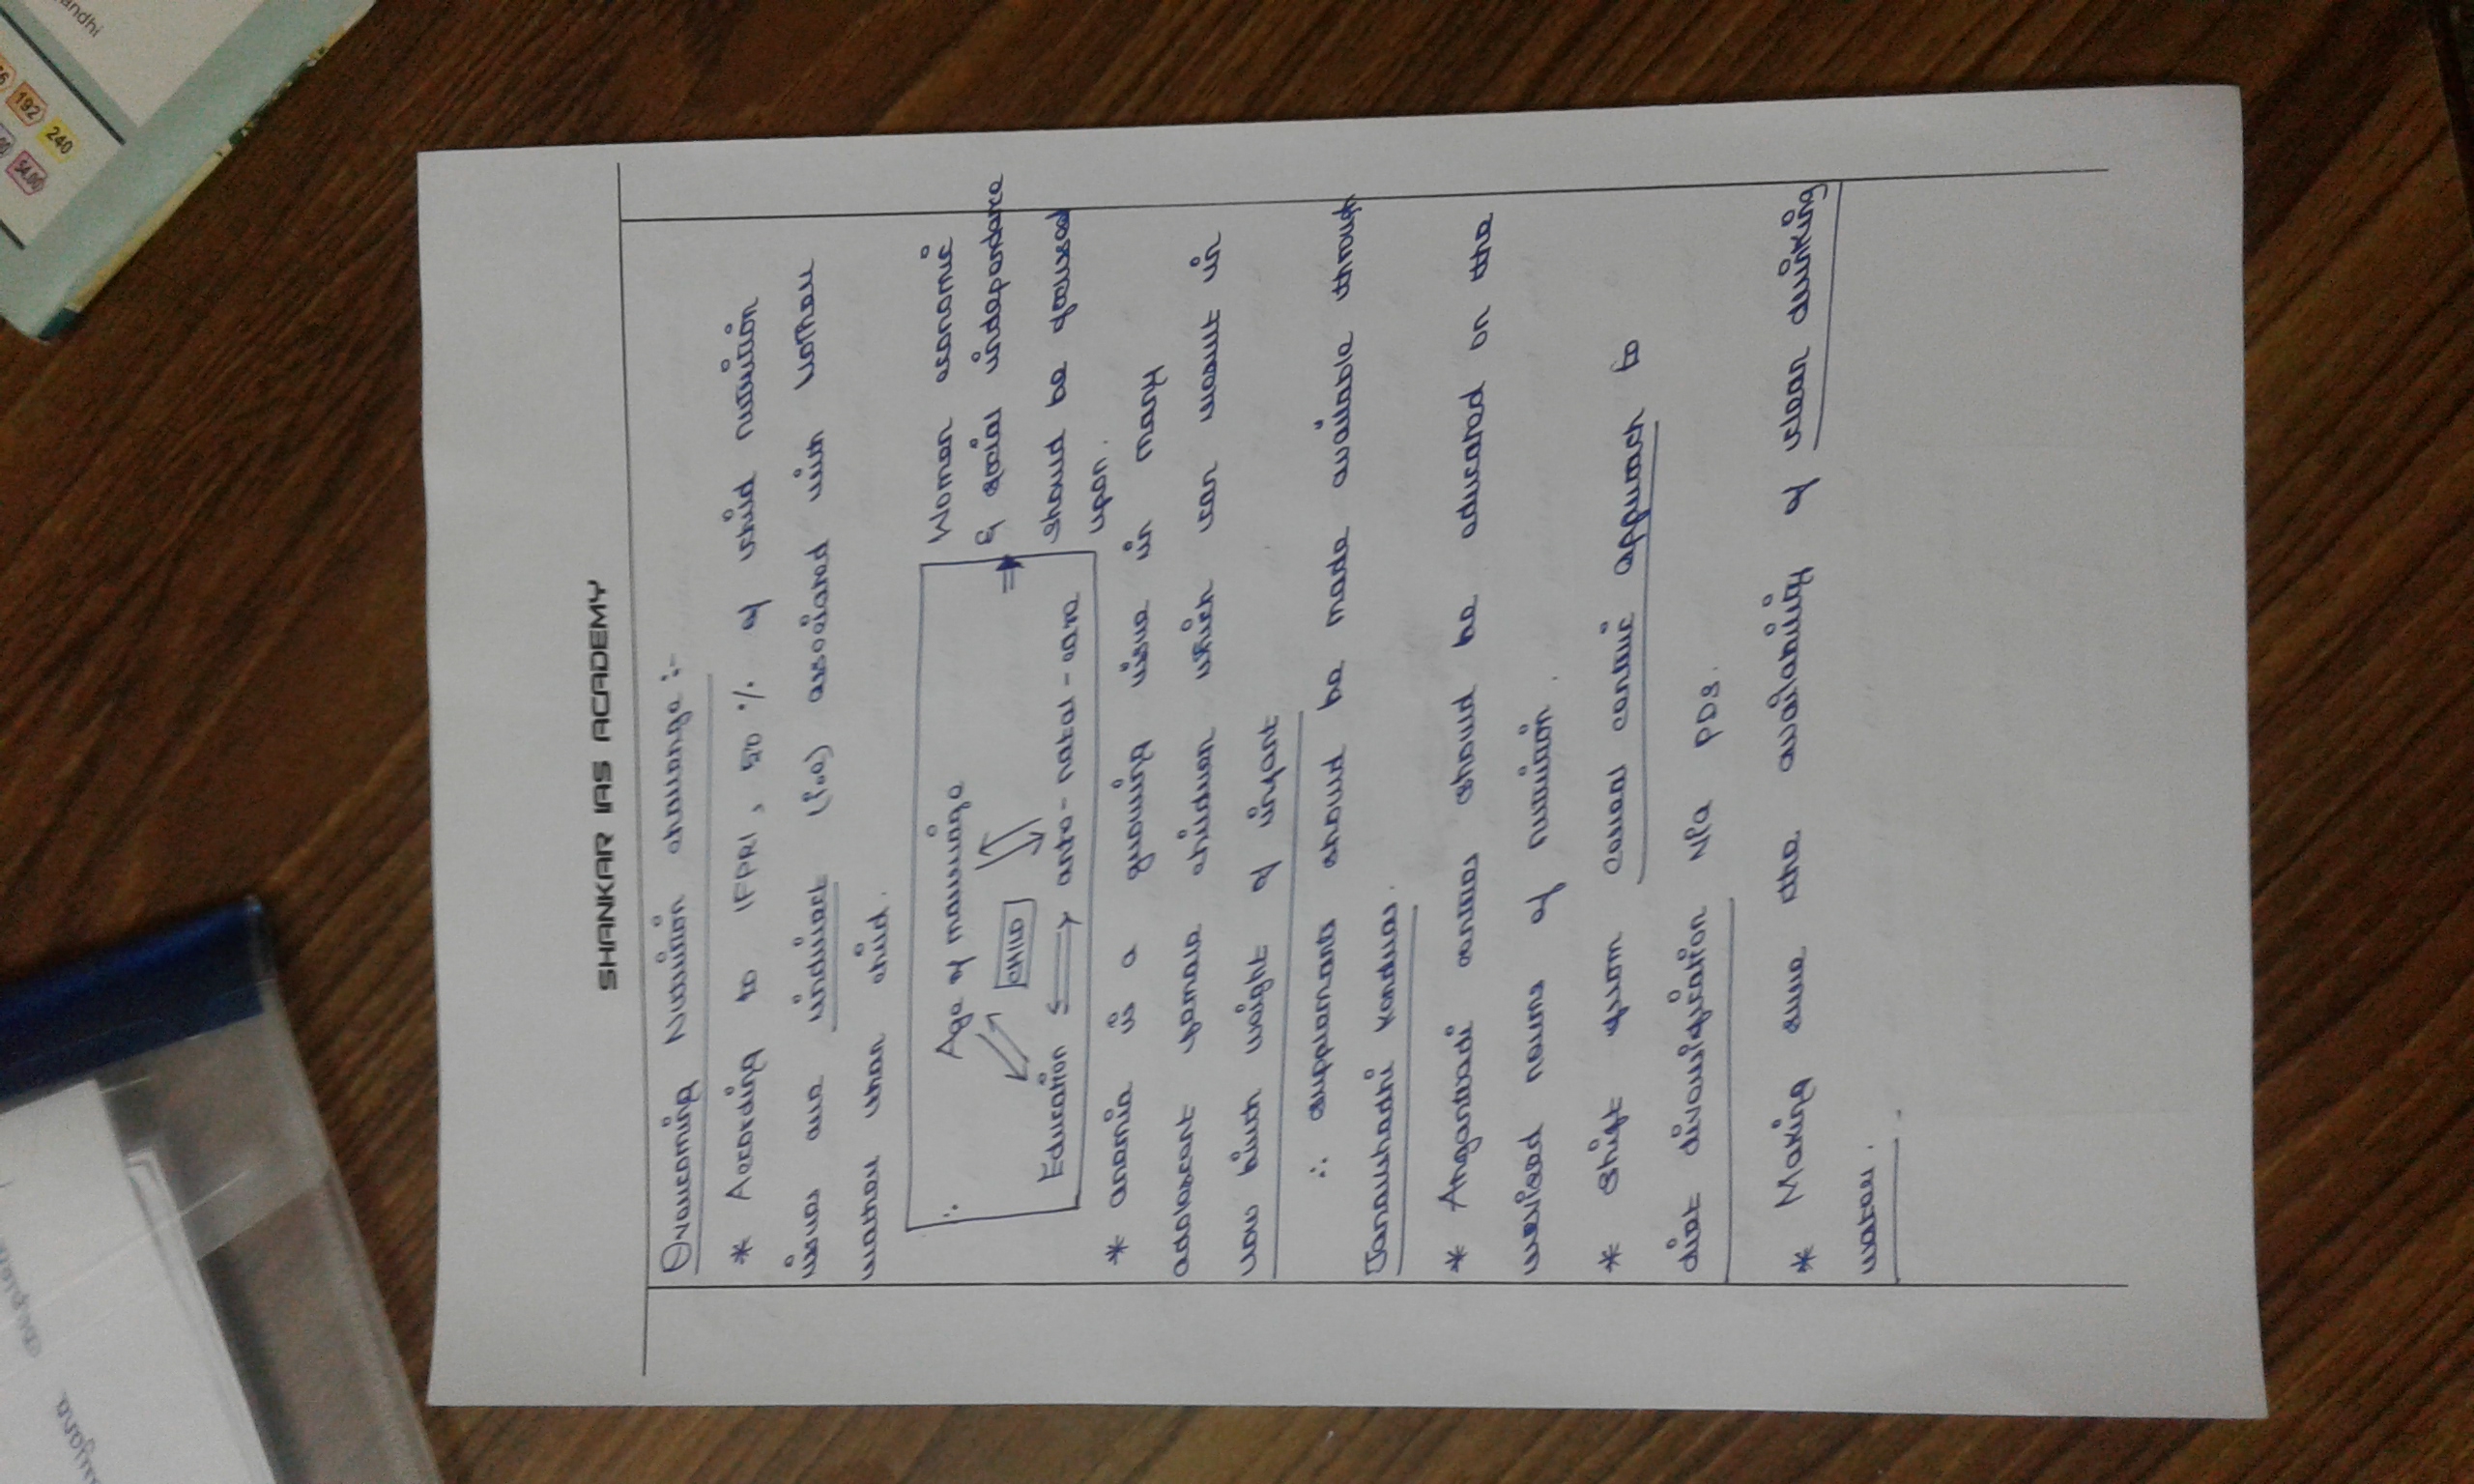 SHANKAR IAS ACADEMY
Overcoming Nutrition challenge :-
* According to IFPRI, 50 % of child nutrition
issues are indirect (i.e) associated with mother
rather than child.
∴ Age of marriage
CHILD
Education ante-natal-care
Woman economic
& social independence
should be focused
upon.
* anemia is a growing issue in many
adolescent female children which can result in
low birth weight of infant
∴ supplements should be made available through
Janaushadi kendras.
* Anganwadi centres should be educated on the
revised norms of nutrition.
* Shift from cereal centric approach to
diet diversification via PDS.
* Making sure the availability of clean drinking
water.
andhi
192
240
54.00